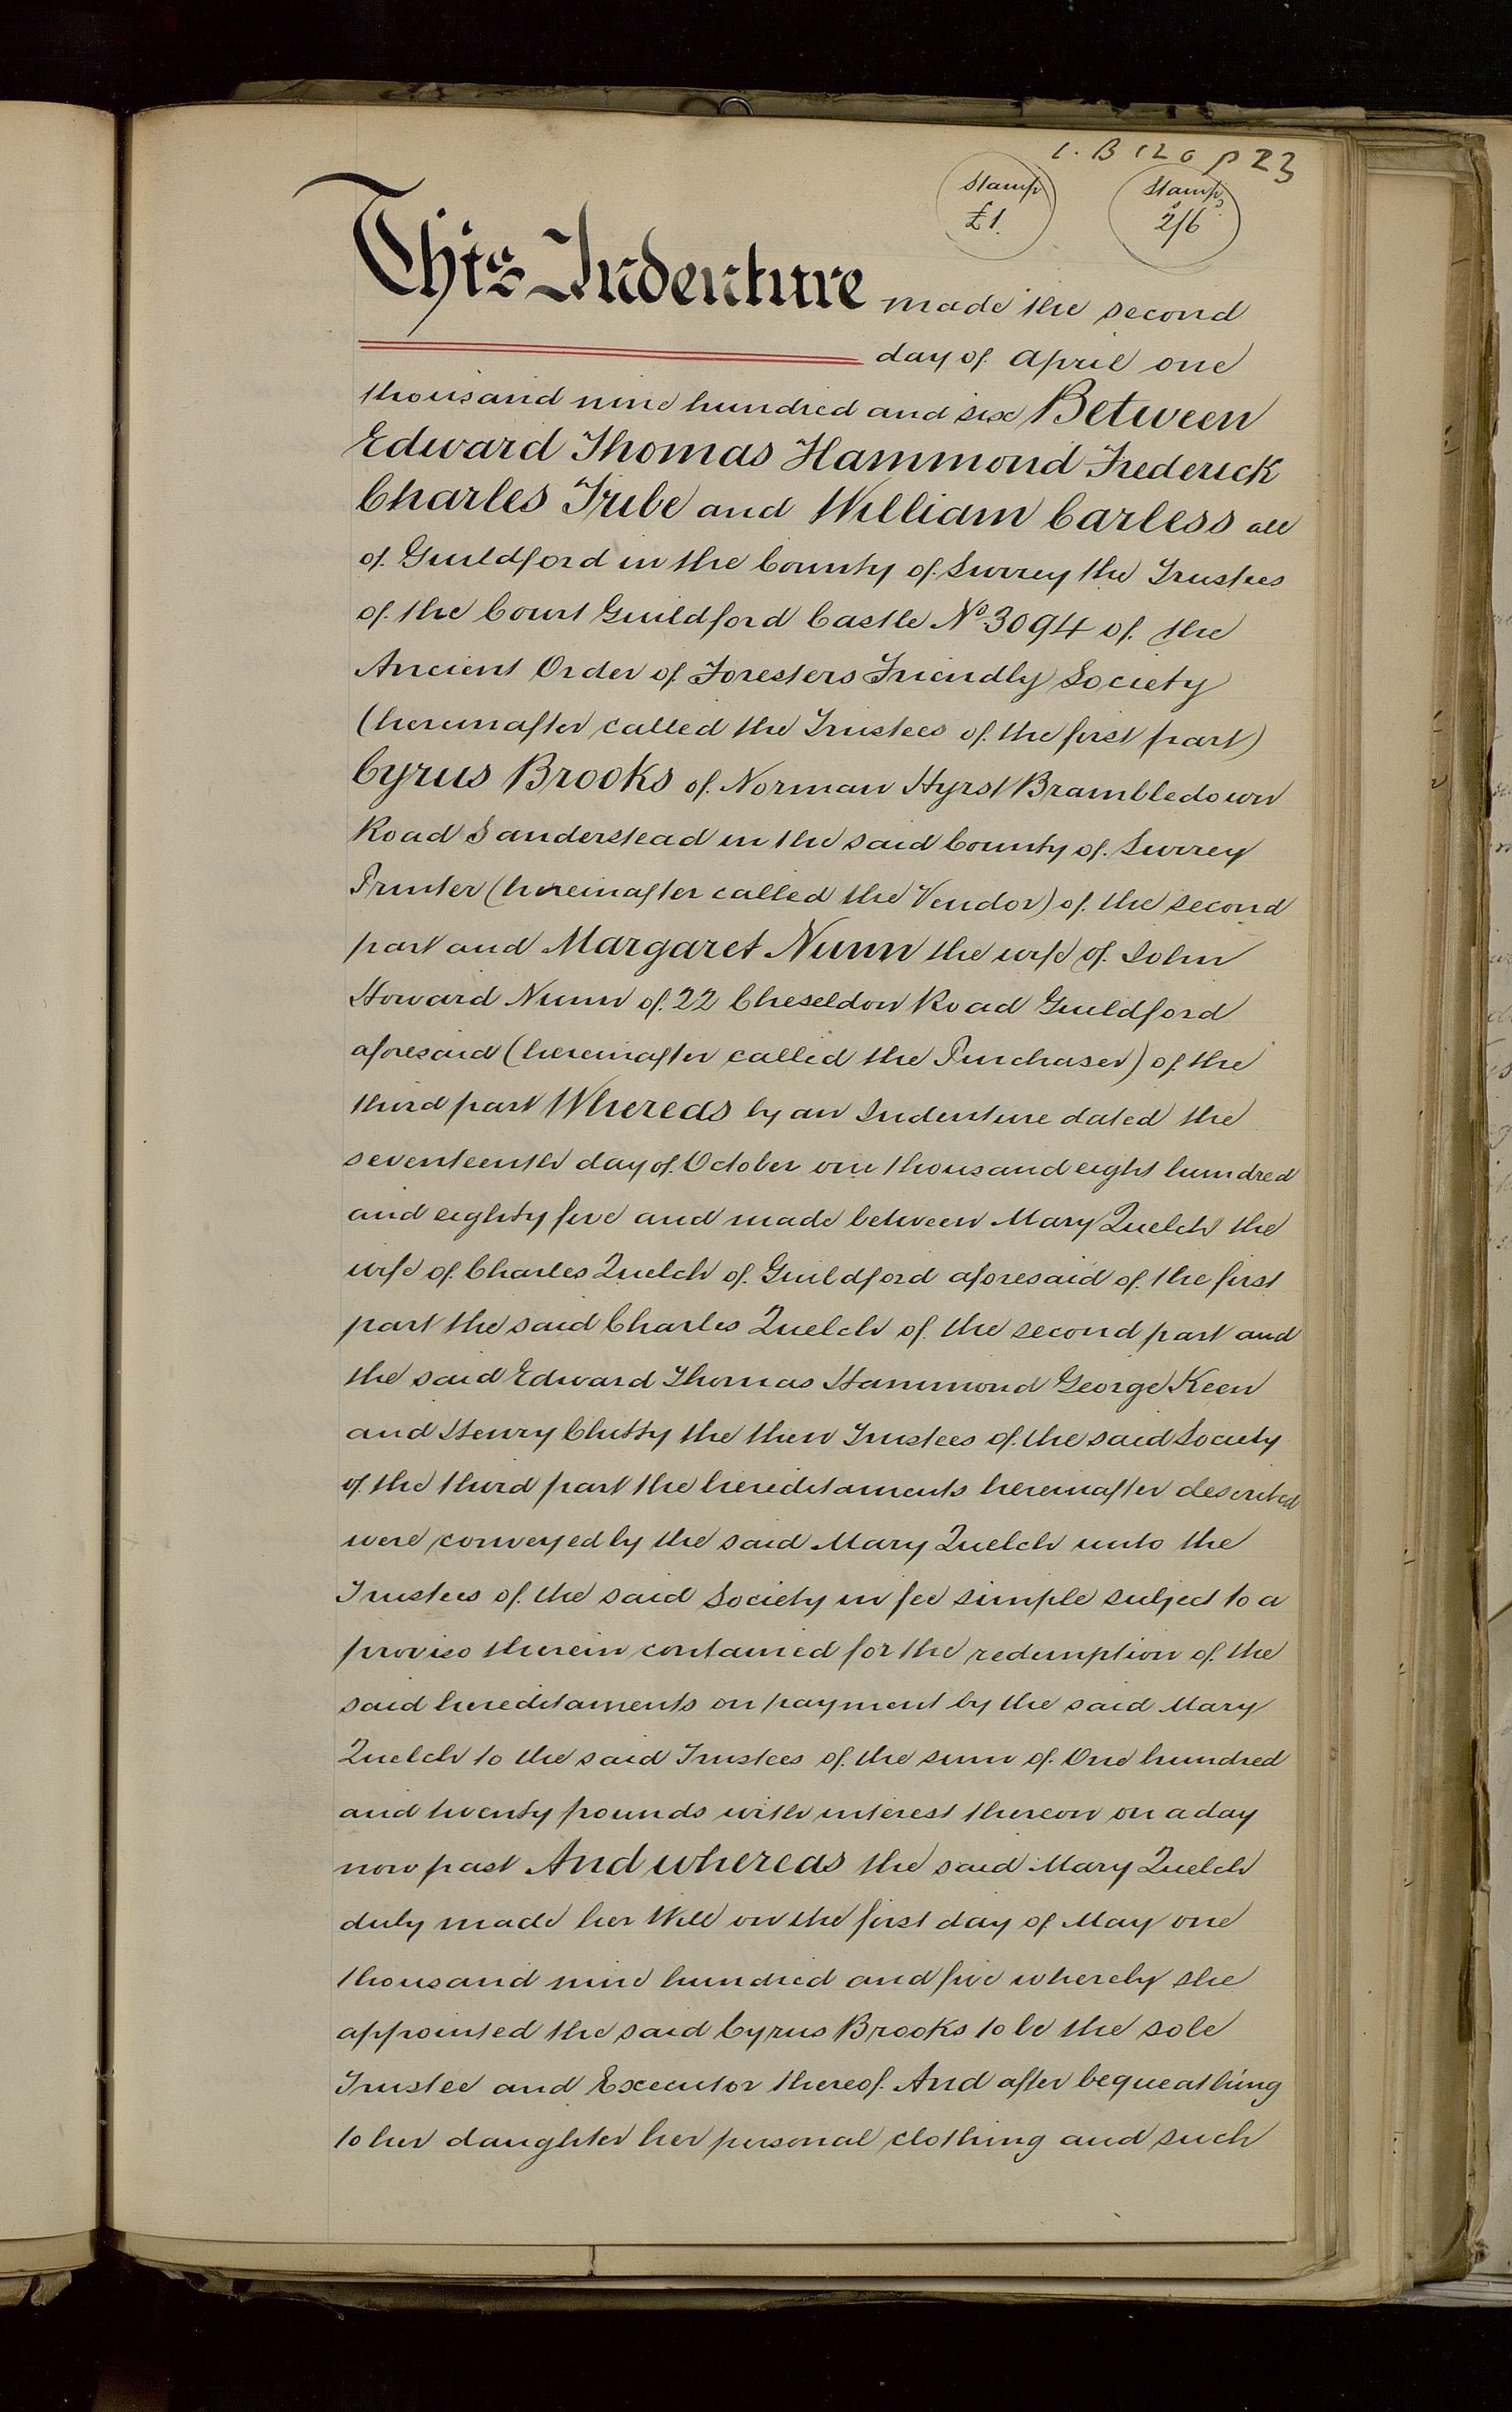 L. B 120 p 23
Stamp
£1.
Stamp
2/6
This Indenture made the second
day of April one
thousand nine hundred and six Between
Edward Thomas Hammond Frederick
Charles Tribe and William Carless all
of Guildford in the County of Surrey the Trustees
of the Court Guildford Castle No. 3094 of the
Ancient Order of Foresters Friendly Society
(hereinafter called the Trustees of the first part)
Cyrus Brooks of Norman Hyrst Brambledown
Road Sanderstead in the said County of Surrey
Printer (hereinafter called the Vendor) of the second
part and Margaret Nunn the wife of John
Howard Nunn of 22 Cheseldon Road Guildford
aforesaid (hereinafter called the Purchaser) of the
third part Whereas by an Indenture dated the
seventeenth day of October one thousand eight hundred
and eighty five and made between Mary Quelch the
wife of Charles Quelch of Guildford aforesaid of the first
part the said Charles Quelch of the second part and
the said Edward Thomas Hammond George Keen
and Henry Chitty the then Trustees of the said Society
of the third part the hereditaments hereinafter described
were conveyed by the said Mary Quelch unto the
Trustees of the said Society in fee simple subject to a
proviso therein contained for the redemption of the
said hereditaments on payment by the said Mary
Quelch to the said Trustees of the sum of One hundred
and twenty pounds with interest thereon on a day
now past And whereas the said Mary Quelch
duly made her Will on the first day of May one
thousand nine hundred and five whereby she
appointed the said Cyrus Brooks to be the sole
Trustee and Executor thereof. And after bequeathing
to her daughter her personal clothing and such